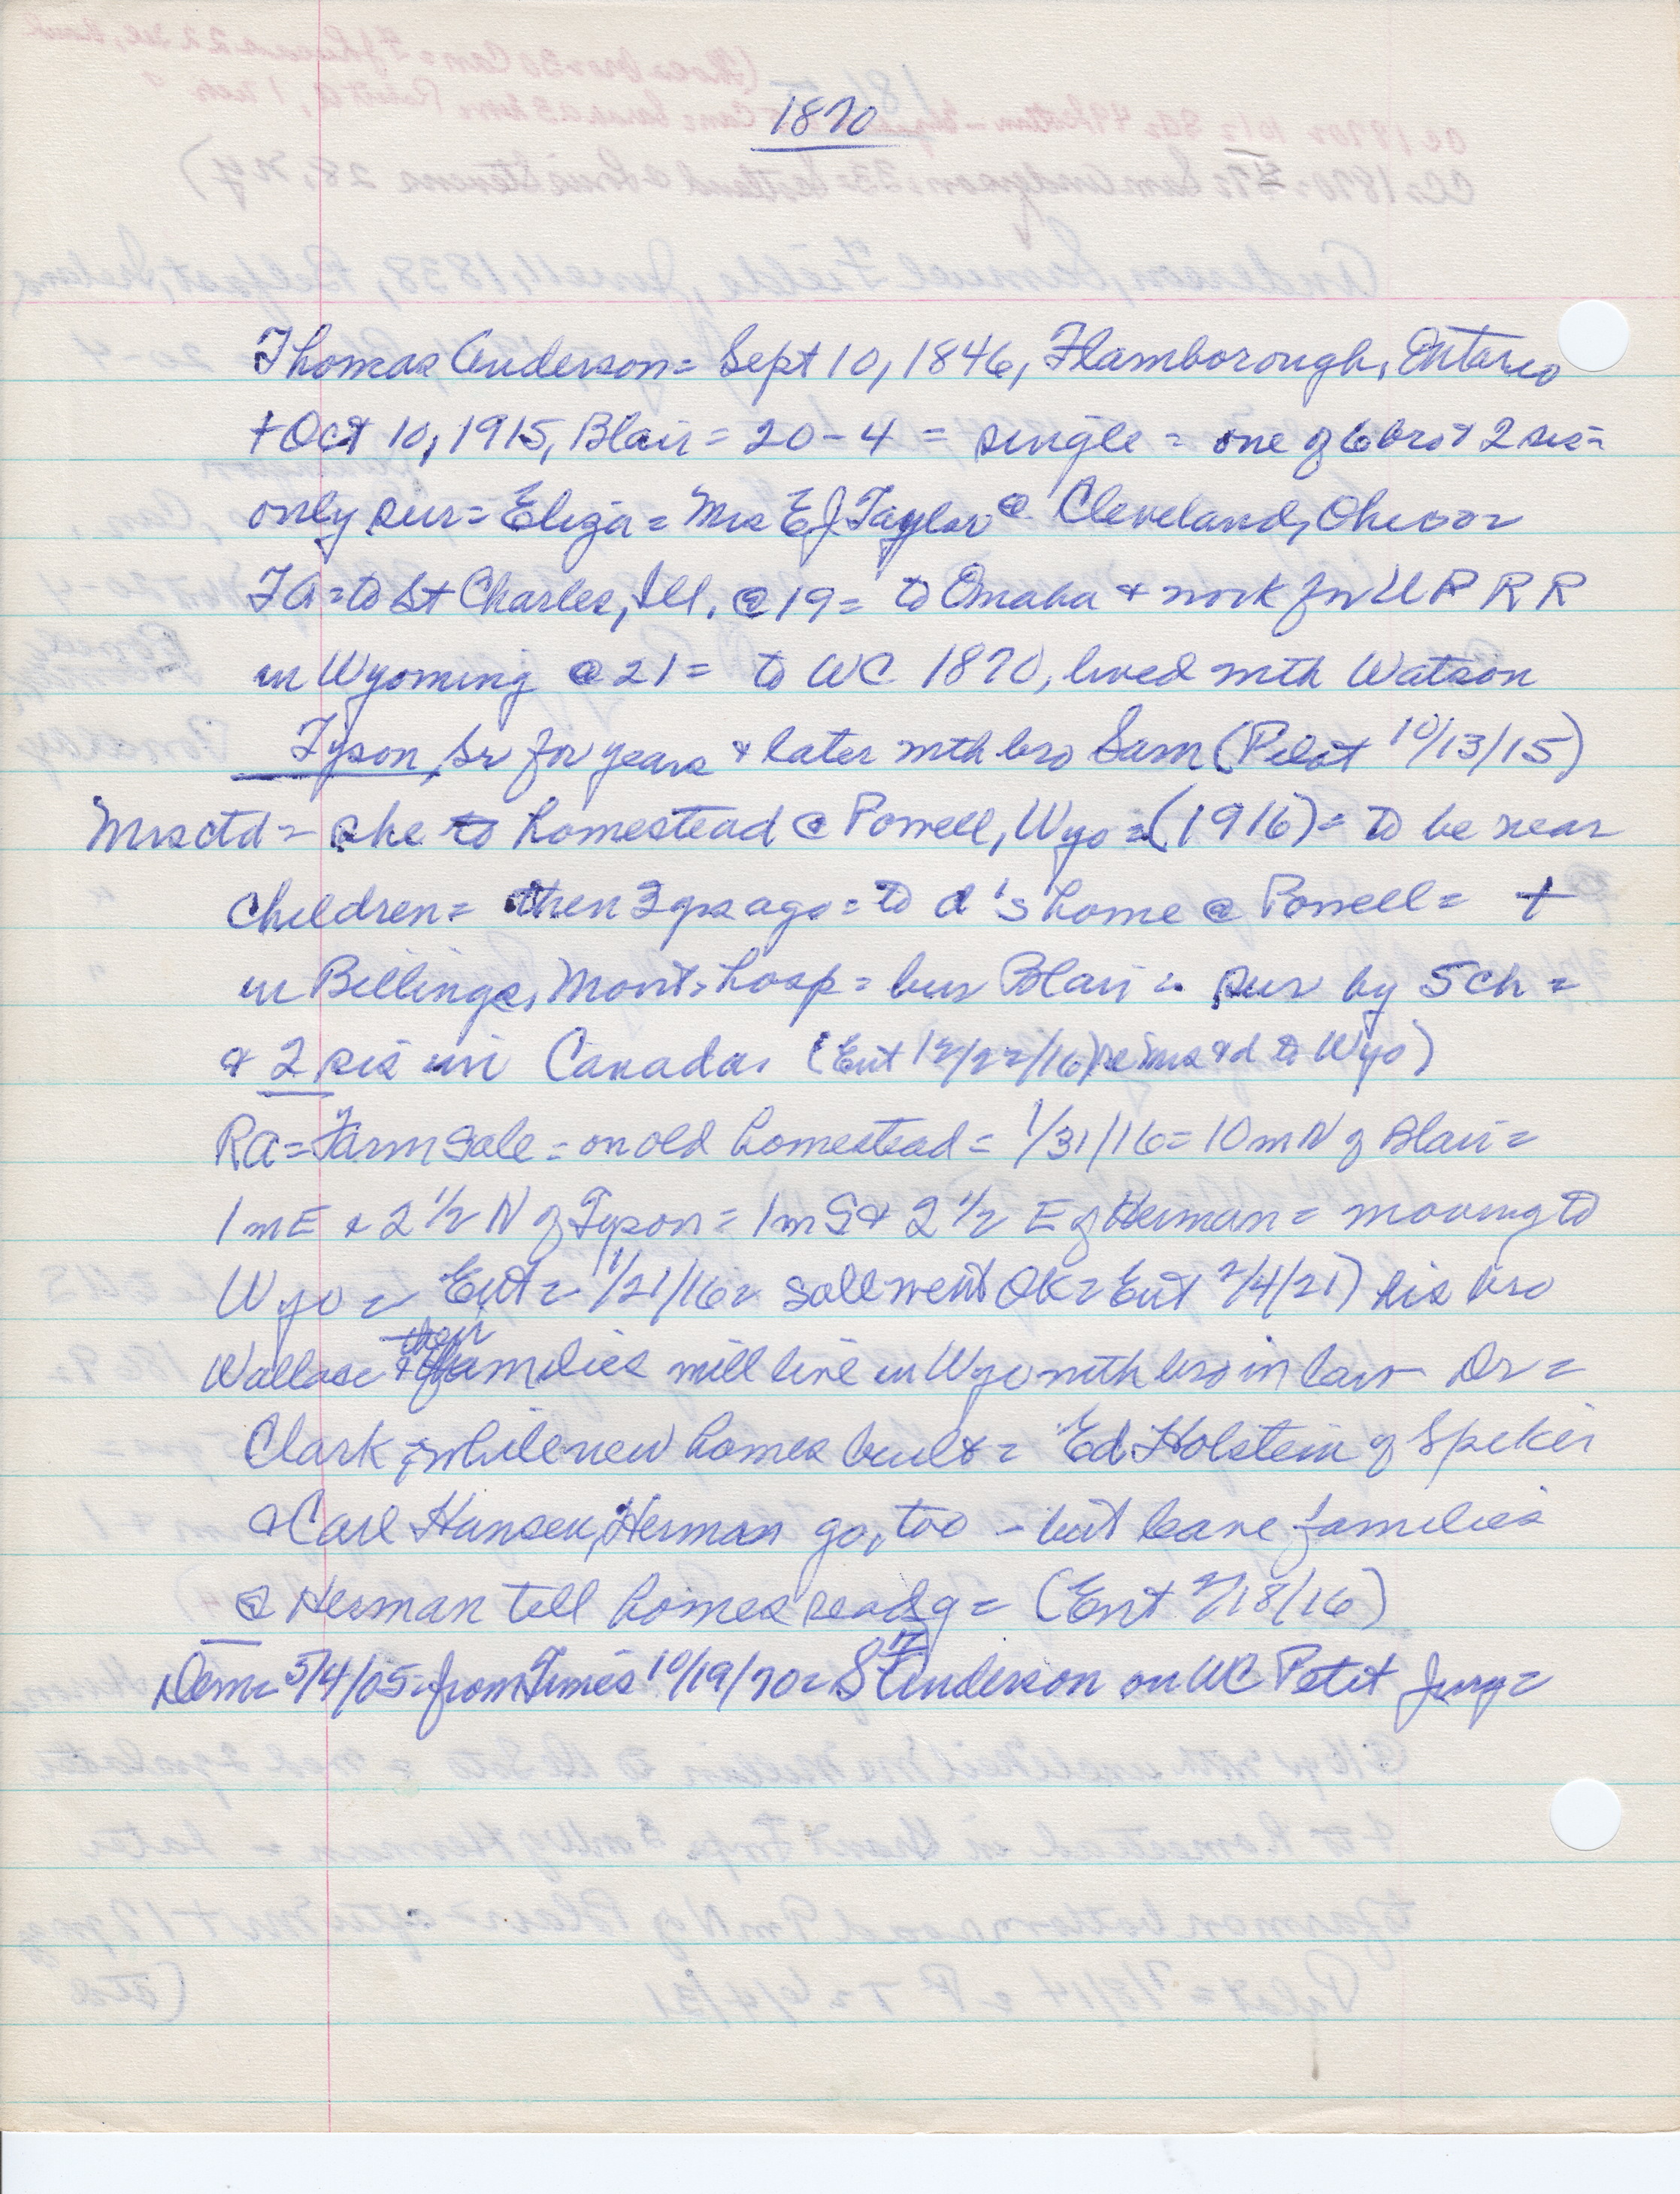 1870
Thomas Anderson = Sept 10, 1846, Flamborough, Ontario
+ Oct 10, 1915, Blair = 20-4 = single = one of 6 bro & 2 sis =
only sur = Eliza = Mrs E J Taylor @ Cleveland, Ohio =
TA = to St Charles, Ill. @ 19 = to Omaha & work for U P R R
in Wyoming @ 21 = to WC 1870, lived with Watson
Tyson, Sr for years & later with bro Sam (Pilot 10/13/15)
Mrs ctd = she to homestead @ Powell, Wyo = (1916) = to be near
children = then 3 yrs ago = to d's home @ Powell = +
in Billings, Mont. hosp = bur Blair = sur by 5 ch =
& 2 sis in Canada. (Ent 12/22/16) re Mrs & d to Wyo)
RA = Farm Sale = on old homestead = 1/31/16 = 10 m N of Blair =
1 m E & 2 1/2 N of Tyson = 1 m S & 2 1/2 E of Herman = moving to
Wyo = Ent = 1/21/16 = sale went OK = Ent 2/4/21) his bro
Wallace & their families will live in Wyo with bro in law Dr =
Clark, while new homes built = Ed Holstein of Spiker
& Carl Hansen, Herman go, too - but leave families
@ Herman till homes ready = (Ent 2/18/16)
Dem = 5/4/05 = from Times 10/19/70 = S F Anderson on WC Petit Jury =